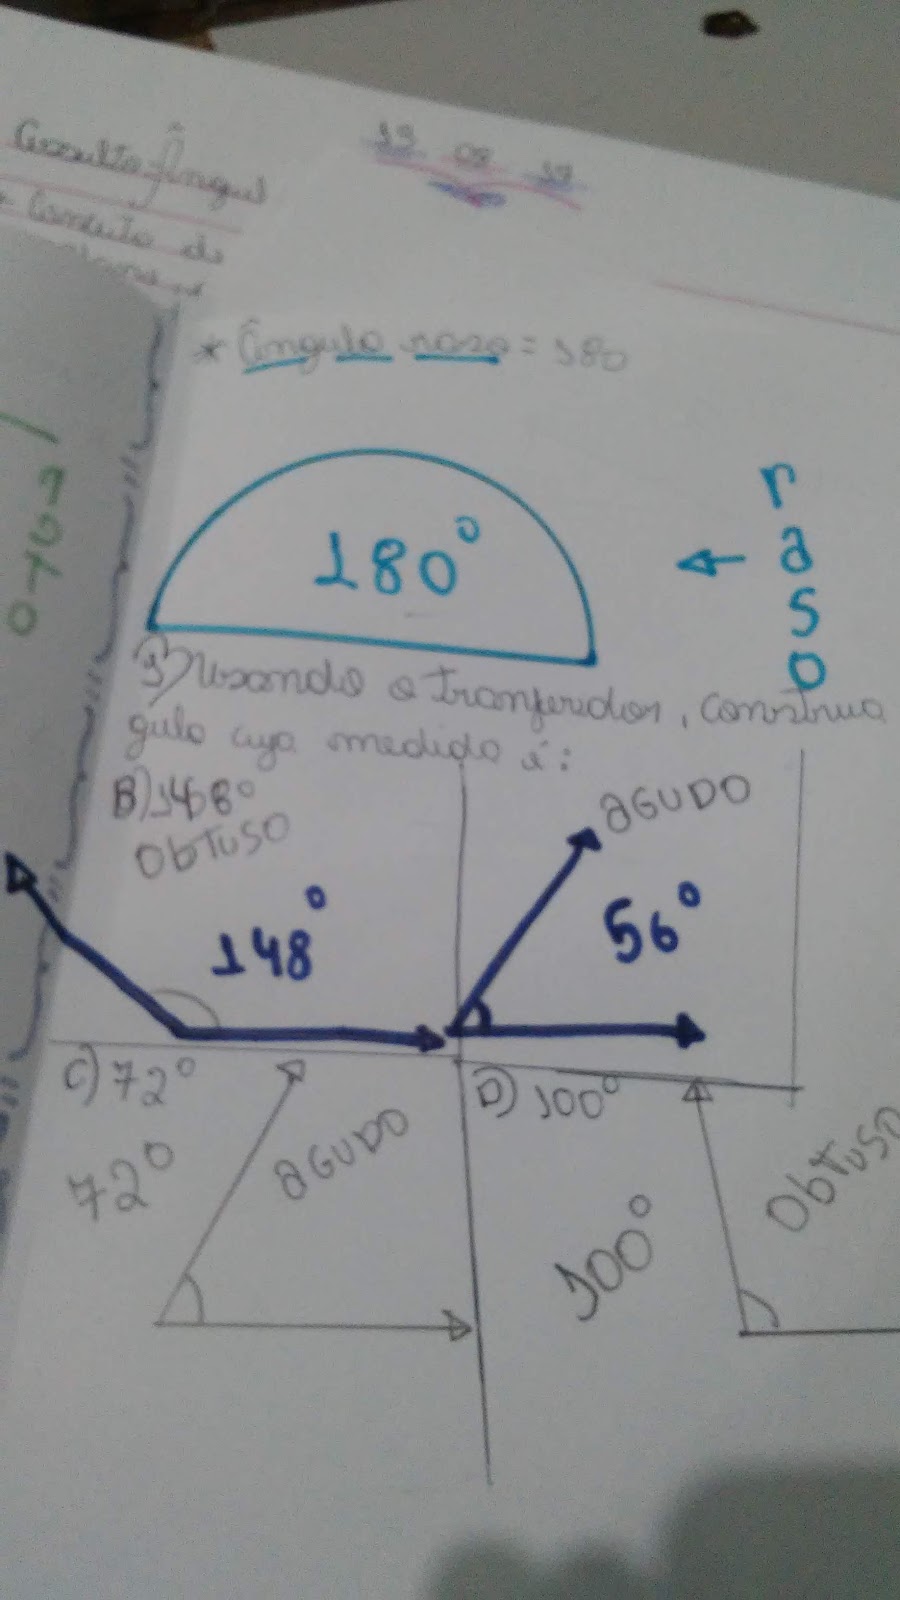 19 08 17
* Ângulo raso = 180
180°
raso
1) Usando o tranferidor, construa
gulo cuja medida é:
B) 148°
Obtuso
148°
AGUDO
56°
C) 72°
72°
AGUDO
D) 100°
100°
Obtuso